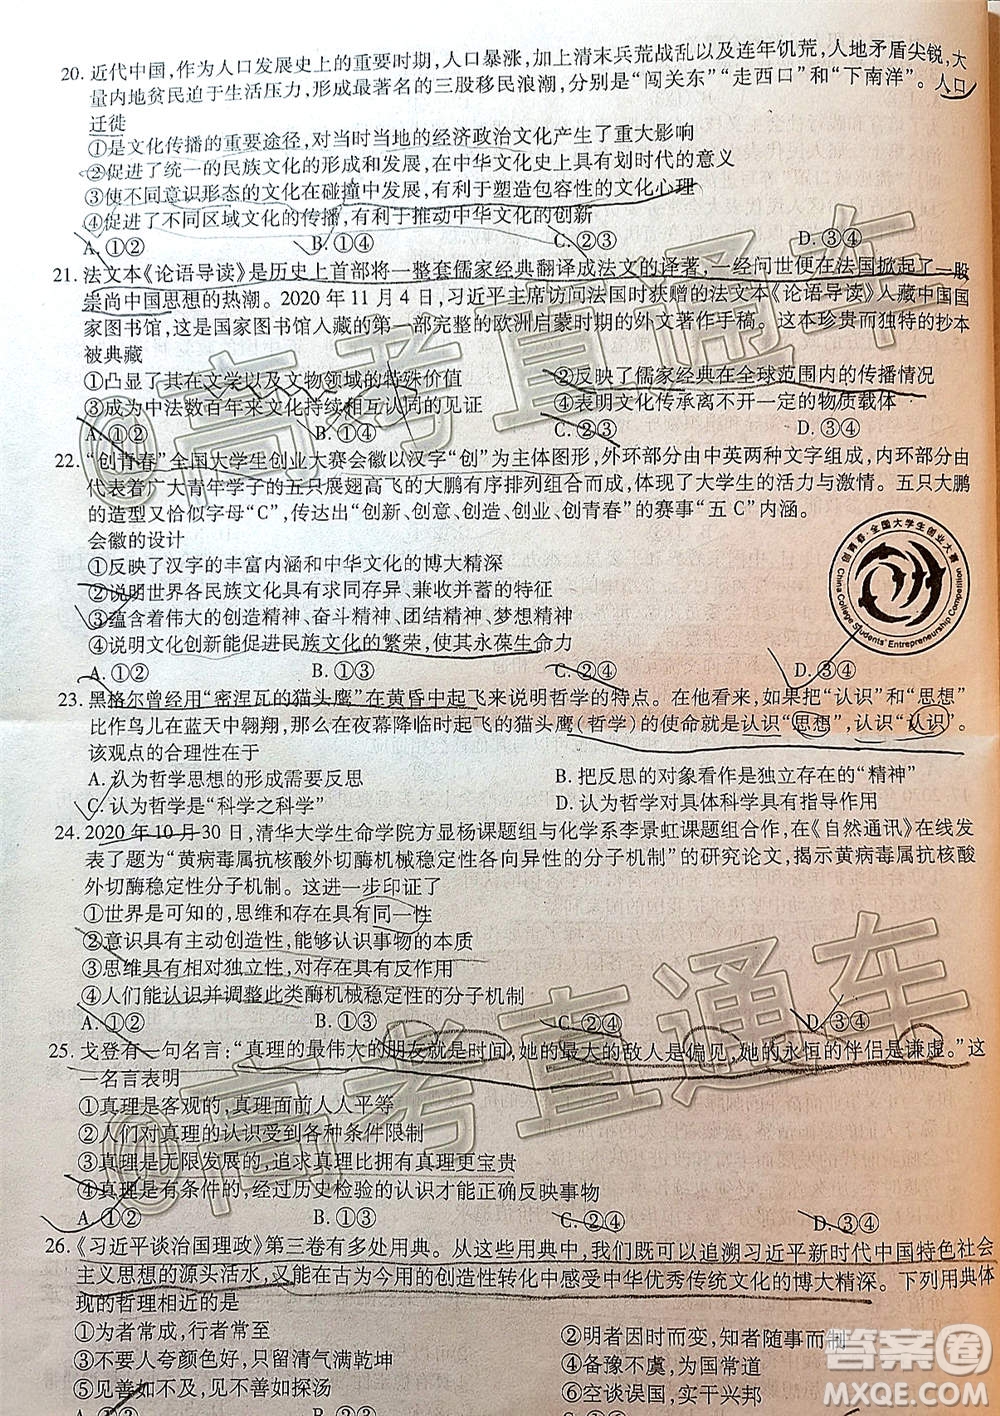 20. 近代中国,作为人口发展史上的重要时期,人口暴涨,加上清末兵荒战乱以及连年饥荒,人地矛盾尖锐,大
量内地贫民迫于生活压力,形成最著名的三股移民浪潮,分别是“闯关东”“走西口”和“下南洋”。人口
迁徙
①是文化传播的重要途径,对当时当地的经济政治文化产生了重大影响
②促进了统一的民族文化的形成和发展,在中华文化史上具有划时代的意义
③使不同意识形态的文化在碰撞中发展,有利于塑造包容性的文化心理
④促进了不同区域文化的传播,有利于推动中华文化的创新
A. ①② B. ①④ C. ②③ D. ③④
21. 法文本《论语导读》是历史上首部将一整套儒家经典翻译成法文的译著,一经问世便在法国掀起了一股
崇尚中国思想的热潮。2020年11月4日,习近平主席访问法国时获赠的法文本《论语导读》入藏中国国
家图书馆,这是国家图书馆入藏的第一部完整的欧洲启蒙时期的外文著作手稿。这本珍贵而独特的抄本
被典藏
①凸显了其在文学以及文物领域的特殊价值 ②反映了儒家经典在全球范围内的传播情况
③成为中法数百年来文化持续相互认同的见证 ④表明文化传承离不开一定的物质载体
A. ①② B. ①④ C. ②③ D. ③④
22. “创青春”全国大学生创业大赛会徽以汉字“创”为主体图形,外环部分由中英两种文字构成,内环部分由
代表着广大青年学子的五只展翅高飞的大鹏有序排列组合而成,体现了大学生的活力与激情。五只大鹏
的造型又恰似字母“C”,传达出“创新、创意、创业、创青春”的赛事“五C”内涵。
会徽的设计
①反映了汉字的丰富内涵和中华文化的博大精深
②说明世界各民族文化具有求同存异、兼收并蓄的特征
③蕴含着伟大的创造精神、奋斗精神、团结精神、梦想精神
④说明文化创新能促进民族文化的繁荣,使其永葆生命力
A. ①② B. ①③ C. ②④ D. ③④
创青春·全国大学生创业大赛
China College Students' Entrepreneurship Competition
23. 黑格尔曾经用“密涅瓦的猫头鹰”在黄昏中起飞来说明哲学的特点。在他看来,如果把“认识”和“思想”
比作鸟儿在蓝天中翱翔,那么在夜幕降临时起飞的猫头鹰(哲学)的使命就是认识“思想”,认识“认识”。
该观点的合理性在于
A. 认为哲学思想的形成需要反思 B. 把反思的对象看作是独立存在的“精神”
C. 认为哲学是“科学之科学” D. 认为哲学对具体科学具有指导作用
24. 2020年10月30日,清华大学生命学院方显杨课题组与化学系李景虹课题组合作,在《自然通讯》在线发
表了题为“黄病毒属抗核酸外切酶机械稳定性各向异性的分子机制”的研究论文,揭示黄病毒属抗核酸
外切酶机械稳定性分子机制。这进一步印证了
①世界是可知的,思维和存在具有同一性
②意识具有主动创造性,能够认识事物的本质
③思维具有相对独立性,对存在具有反作用
④人们能认识并调整此类酶机械稳定性的分子机制
A. ①② B. ①③ C. ②④ D. ③④
25. 戈登有一句名言:“真理的最伟大的朋友就是时间,她的最大的敌人是偏见,她的永恒的伴侣是谦虚。”这
一名言表明
①真理是客观的,真理面前人人平等
②人们对真理的认识受到各种条件限制
③真理是无限发展的,追求真理比拥有真理更宝贵
④真理是有条件的,经过历史检验的认识才能正确反映事物
A. ①② B. ①③ C. ②④ D. ③④
26. 《习近平谈治国理政》第三卷有多处用典。从这些用典中,我们可以追溯习近平新时代中国特色社会
主义思想的源头活水,又能在古为今用的创造性转化中感受中华优秀传统文化的博大精深。下列用典体
现的哲理相近的是
①为者常成,行者常至 ②明者因时而变,知者随事而制
③不要人夸颜色好,只留清气满乾坤 ④备豫不虞,为国常道
⑤见善如不及,见不善如探汤 ⑥空谈误国,实干兴邦
@高考直通车
@高考直通车
答案圈
MXQE.COM